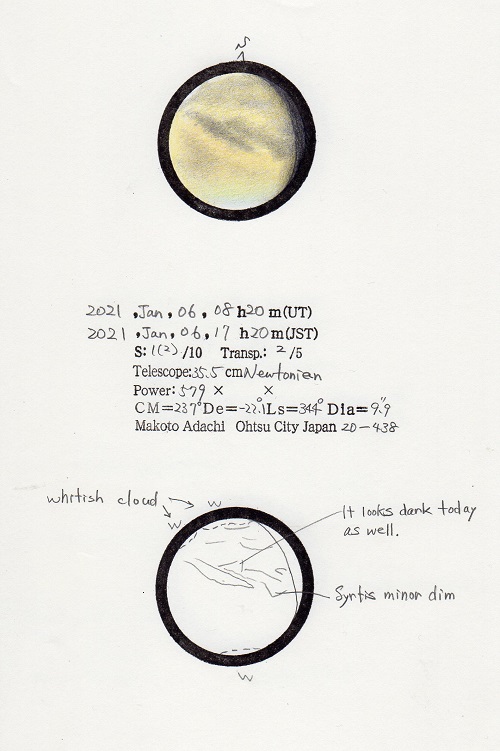 S
2021 ,Jan, 06, 08 h20 m(UT)
2021 ,Jan, 06, 17 h20 m(JST)
S: 1(2) /10 Transp.: 2 /5
Telescope:35.5 cm Newtonian
Power: 579 × ×
CM=237° De=-22.1° Ls=344° Dia=9.9"
Makoto Adachi Ohtsu City Japan 20-438
whitish cloud
W
W
It looks dank today
as well.
Syrtis minor dim
W